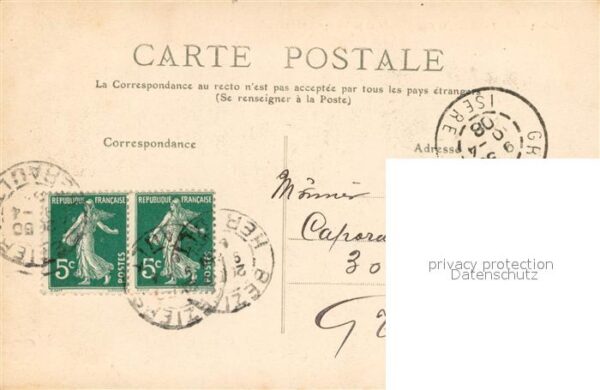 CARTE POSTALE
La Correspondance au recto n'est pas acceptée par tous les pays étrangers
(Se renseigner à la Poste)
Correspondance
Adresse
ISERE
REPUBLIQUE FRANÇAISE
5c
POSTES
REPUBLIQUE FRANÇAISE
5c
POSTES
BEZIERS
HER
Mônnier
Capora
30
privacy protection
Datenschutz